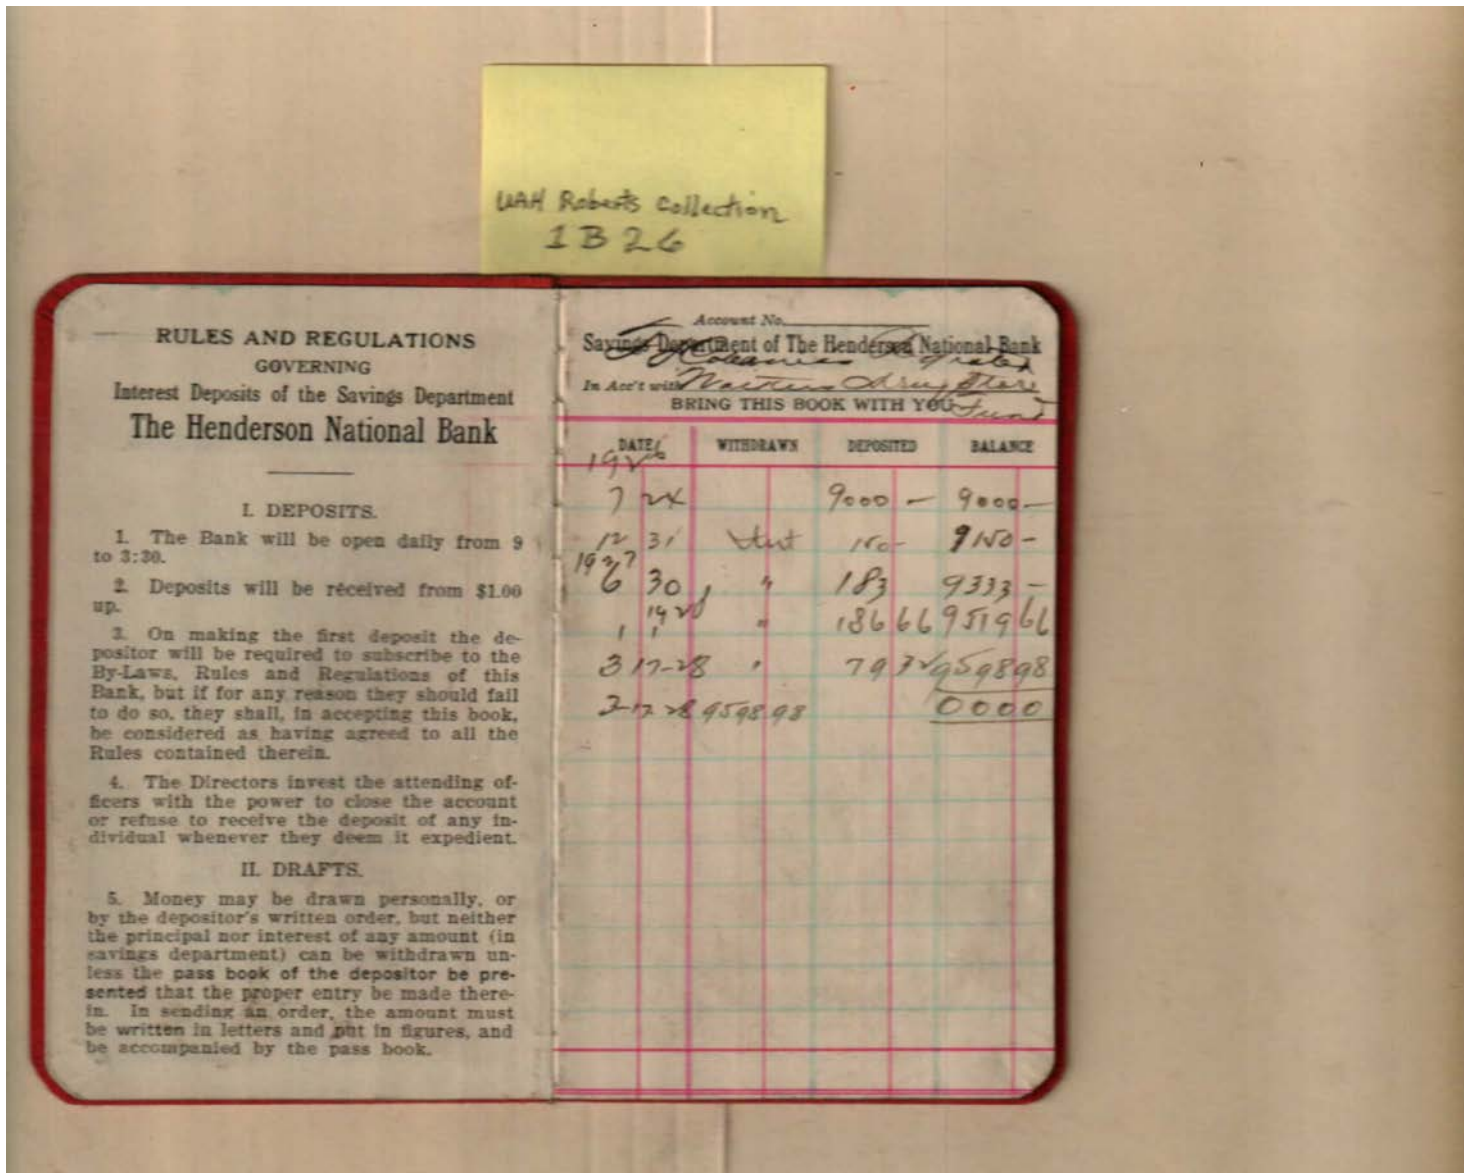 UAH Roberts Collection
1B26
RULES AND REGULATIONS
GOVERNING
Interest Deposits of the Savings Department
The Henderson National Bank
I. DEPOSITS.
1. The Bank will be open daily from 9
to 3:30.
2. Deposits will be received from $1.00
up.
3. On making the first deposit the de-
positor will be required to subscribe to the
By-Laws, Rules and Regulations of this
Bank, but if for any reason they should fail
to do so, they shall, in accepting this book,
be considered as having agreed to all the
Rules contained therein.
4. The Directors invest the attending of-
ficers with the power to close the account
or refuse to receive the deposit of any in-
dividual whenever they deem it expedient.
II. DRAFTS.
5. Money may be drawn personally, or
by the depositor's written order, but neither
the principal nor interest of any amount (in
savings department) can be withdrawn un-
less the pass book of the depositor be pre-
sented that the proper entry be made there-
in. In sending an order, the amount must
be written in letters and put in figures, and
be accompanied by the pass book.
Account No.
Savings Department of The Henderson National Bank
In Acc't with Drug Store
BRING THIS BOOK WITH YOU Fund
DATE WITHDRAWN DEPOSITED BALANCE
1926
7 24 9000 - 9000 -
12 31 Int 150 - 9150 -
1927
6 30 " 183 9333 -
1928
1 1 " 186 66 9519 66
3 17-28 " 79 32 9598 98
3 17 28 9598 98 0000